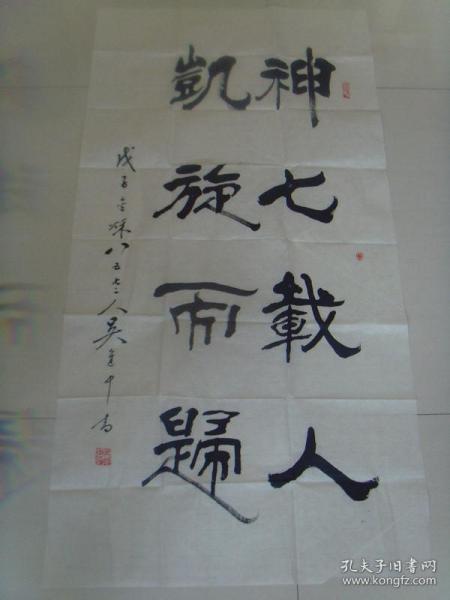 神七載人
凱旋而歸
戊子金秋八五老人吴進中书
孔夫子旧书网
www.kongfz.com